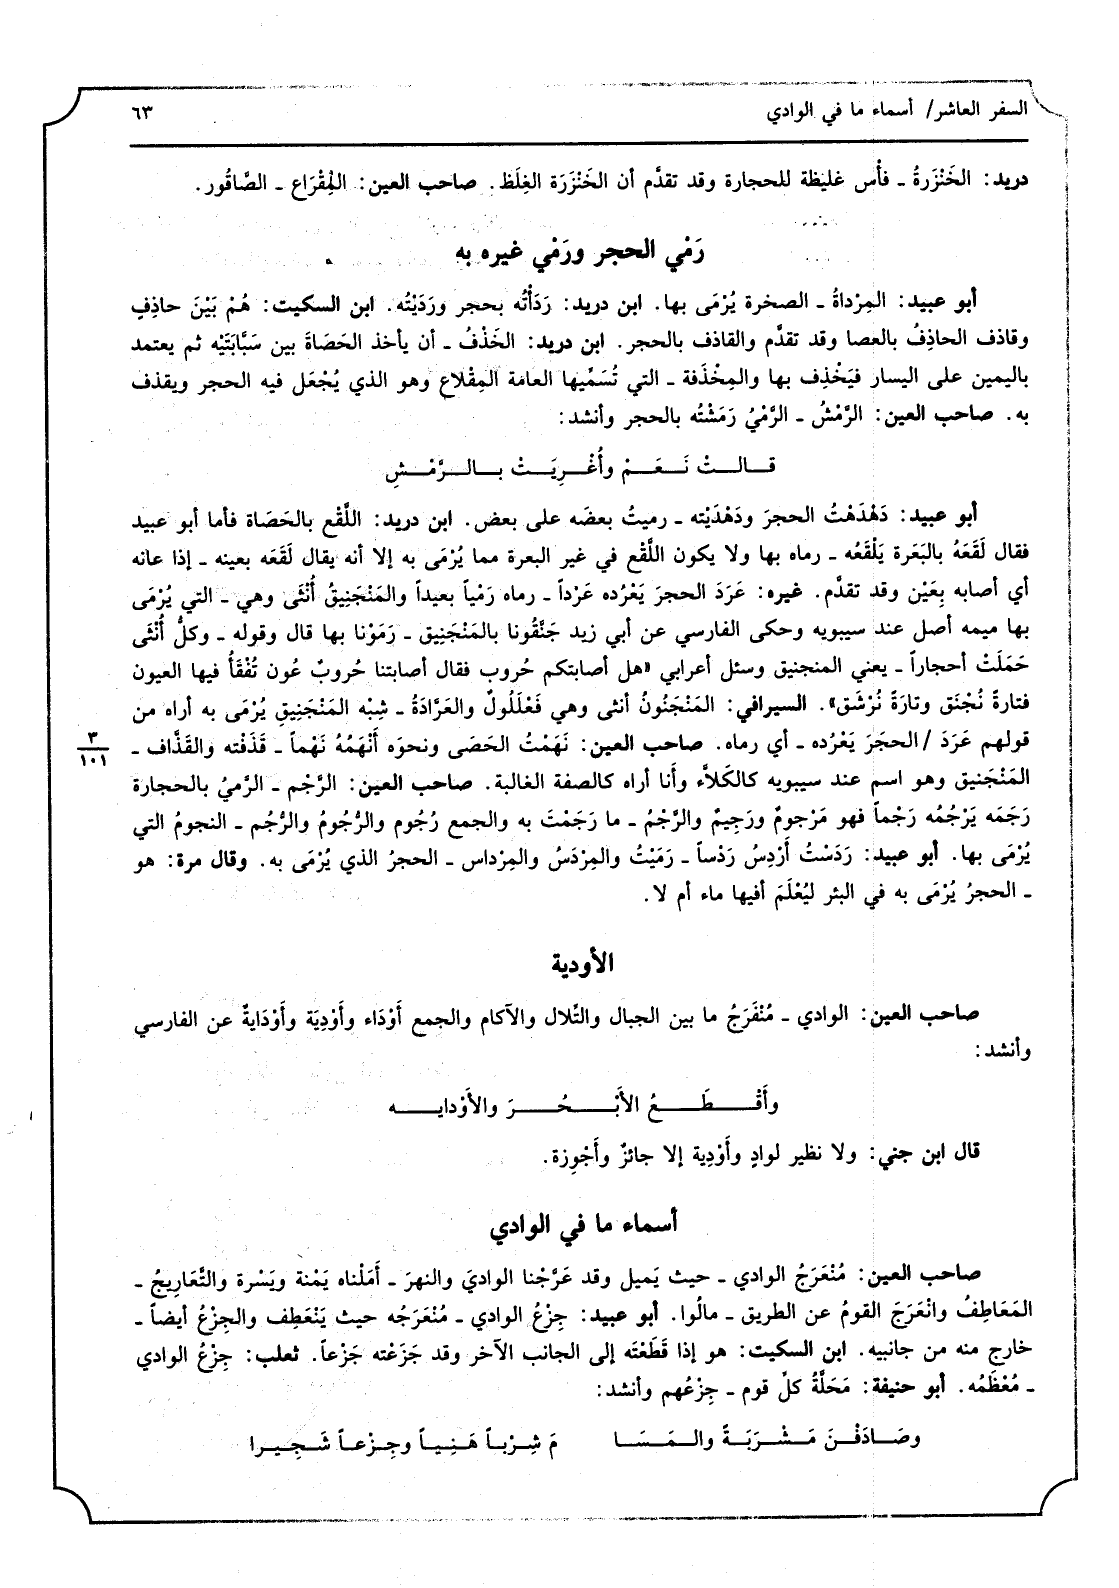 السفر العاشر/ أسماء ما في الوادي ٦٣
دريد: الخَنْزَرةُ ـ فأْس غليظة للحجارة وقد تقدَّم أن الخَنْزَرَة الغِلَظ. صاحب العين: المِقْرَاع ـ الصَّاقُور.
رَمْي الحجر ورَمْي غيره به
أبو عبيد: المِرْداةُ ـ الصخرة يُرْمَى بها. ابن دريد: رَدَأْتُه بحجر ورَدَيْتُه. ابن السكيت: هُمْ بَيْنَ حاذِفٍ
وقاذف الحاذِفُ بالعصا وقد تقدَّم والقاذف بالحجر. ابن دريد: الخَذْفُ ـ أن يأخذ الحَصَاةَ بين سَبَّابَتَيْه ثم يعتمد
باليمين على اليسار فيَخْذِف بها والمِخْذَفة ـ التي تُسَمِّيها العامة المِقْلاع وهو الذي يُجْعَل فيه الحجر ويقذف
به. صاحب العين: الرَّمْشُ ـ الرَّمْيُ رَمَشْتُه بالحجر وأنشد:
قـالـتْ نَـعَـمْ وأُغْـرِيَـتْ بـالـرَّمْـشِ
أبو عبيد: دَهْدَهْتُ الحجرَ ودَهْدَيْته ـ رميتُ بعضَه على بعض. ابن دريد: اللَّقْع بالحَصَاة فأما أبو عبيد
فقال لَقَعَهُ بالبَعَرة يَلْقَعُه ـ رماه بها ولا يكون اللَّقْع في غير البعرة مما يُرْمَى به إلا أنه يقال لَقَعَه بعينه ـ إذا عانه
أي أصابه بِعَيْن وقد تقدَّم. غيره: عَرَدَ الحجرَ يَعْرُده عَرْداً ـ رماه رَمْياً بعيداً والمَنْجَنِيقُ أُنْثَى وهي ـ التي يُرْمَى
بها ميمه أصل عند سيبويه وحكى الفارسي عن أبي زيد جَنَّقُونا بالمَنْجَنِيق ـ رَمَوْنا بها قال وقوله ـ وكلُّ أُنْثَى
حَمَلَتْ أحجاراً ـ يعني المنجنيق وسئل أعرابي «هل أصابتكم حُروب فقال أصابتنا حُروبٌ عُون تُفْقَأُ فيها العيون
فتارةً نُجْنَق وتارَةً نُرْشَق». السيرافي: المَنْجَنُونُ أنثى وهي فَعْلَلُولٌ والعَرَّادَةُ ـ شِبْه المَنْجَنِيقِ يُرْمَى به أراه من
قولهم عَرَدَ /الحجَرَ يَعْرُده ـ أي رماه. صاحب العين: نَهَمْتُ الحَصَى ونحوَه أَنْهَمُهُ نَهْماً ـ قَذَفْته والقَذَّاف ـ
٣
١٠١
المَنْجَنيق وهو اسم عند سيبويه كالكَلاَّء وأَنا أراه كالصفة الغالبة. صاحب العين: الرَّجْم ـ الرَّميُ بالحجارة
رَجَمَه يَرْجُمُه رَجْماً فهو مَرْجومٌ ورَجِيمٌ والرَّجْمُ ـ ما رَجَمْتَ به والجمع رُجُوم والرُّجُومُ والرُّجُم ـ النجومُ التي
يُرْمَى بها. أبو عبيد: رَدَسْتُ أَرْدِسُ رَدْساً ـ رَمَيْتُ والمِرْدَسُ والمِرْداس ـ الحجرُ الذي يُرْمَى به. وقال مرة: هو
ـ الحجرُ يُرْمَى به في البئر ليُعْلَمَ أفيها ماء أم لا.
الأودية
صاحب العين: الوادي ـ مُنْفَرَجُ ما بين الجبال والتِّلال والآكام والجمع أَوْدَاء وأَوْدِيَة وأَوْدَايةٌ عن الفارسي
وأنشد:
وأَقْـطَـعُ الأَبْـحُـرَ والأَوْدايـه
قال ابن جني: ولا نظير لوادٍ وأَوْدِية إلا جائزٌ وأَجْوِزة.
أسماء ما في الوادي
صاحب العين: مُنْعَرَجُ الوادي ـ حيث يَميل وقد عَرَّجْنا الواديَ والنهرَ ـ أَمَلْناه يَمْنة ويَسْرة والتَّعَارِيجُ ـ
المَعَاطِفُ وانْعَرَجَ القومُ عن الطريق ـ مالُوا. أبو عبيد: جِزْعُ الوادي ـ مُنْعَرَجُه حيث يَنْعَطِف والجِزْعُ أيضاً ـ
خارج منه من جانبيه. ابن السكيت: هو إذا قَطَعْتَه إلى الجانب الآخر وقد جَزَعْته جَزْعاً. ثعلب: جِزْعُ الوادي
ـ مُعْظَمُه. أبو حنيفة: مَحَلَّةُ كلِّ قوم ـ جِزْعُهم وأنشد:
وصَـادَفْـنَ مَـشْـرَبَـةً والـمَـسَـا مَ شِرْبـاً هَـنِـيـاً وجِـزْعـاً شَـجِـيـرا